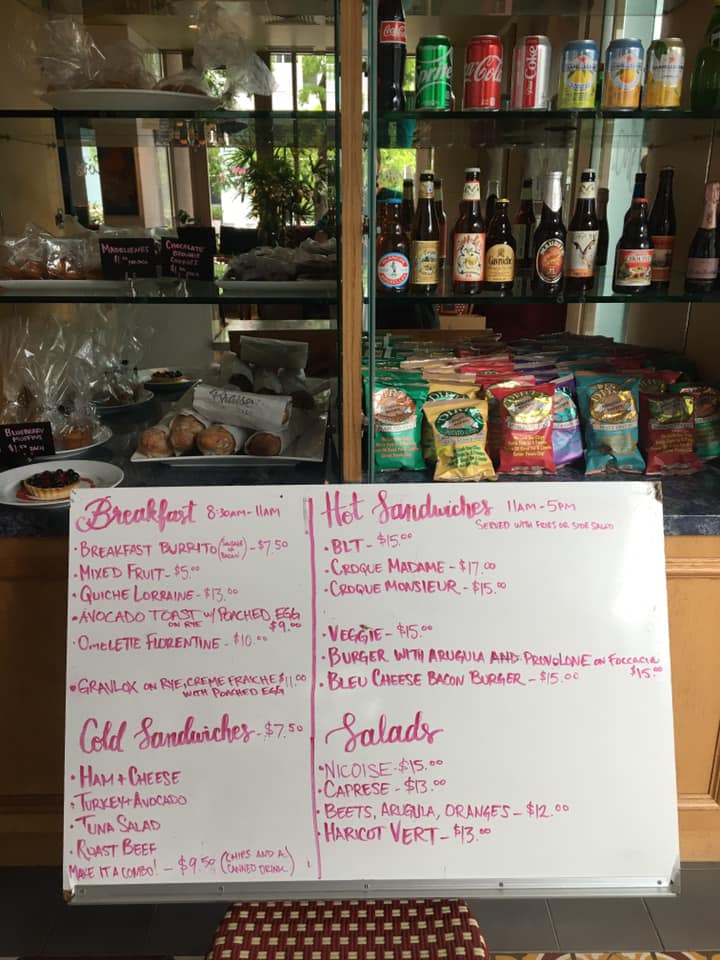 Coca-Cola
Sprite
Coca-Cola
Diet Coke
MADELEINES
CHOCOLATE
BROWNIE
COOKIES
BLUEBERRY
MUFFINS
Breakfast 8:30AM-11AM
· BREAKFAST BURRITO (SAUSAGE OR BACON) - $7.50
· MIXED FRUIT - $5.00
· QUICHE LORRAINE - $13.00
· AVOCADO TOAST W/ POACHED EGG
ON RYE $9.00
· OMELETTE FLORENTINE - $10.00
· GRAVLOX ON RYE, CREME FRAICHE $11.00
WITH POACHED EGG
Cold Sandwiches - $7.50
· HAM + CHEESE
· TURKEY + AVOCADO
· TUNA SALAD
· ROAST BEEF
MAKE IT A COMBO! - $9.50 (CHIPS AND A CANNED DRINK)
Hot Sandwiches 11AM-5PM
SERVED WITH FRIES OR SIDE SALAD
· BLT - $15.00
· CROQUE MADAME - $17.00
· CROQUE MONSIEUR - $15.00
· VEGGIE - $15.00
· BURGER WITH ARUGULA AND PROVOLONE ON FOCCACIA
$15.00
· BLEU CHEESE BACON BURGER - $15.00
Salads
· NICOISE - $15.00
· CAPRESE - $13.00
· BEETS, ARUGULA, ORANGES - $12.00
· HARICOT VERT - $13.00